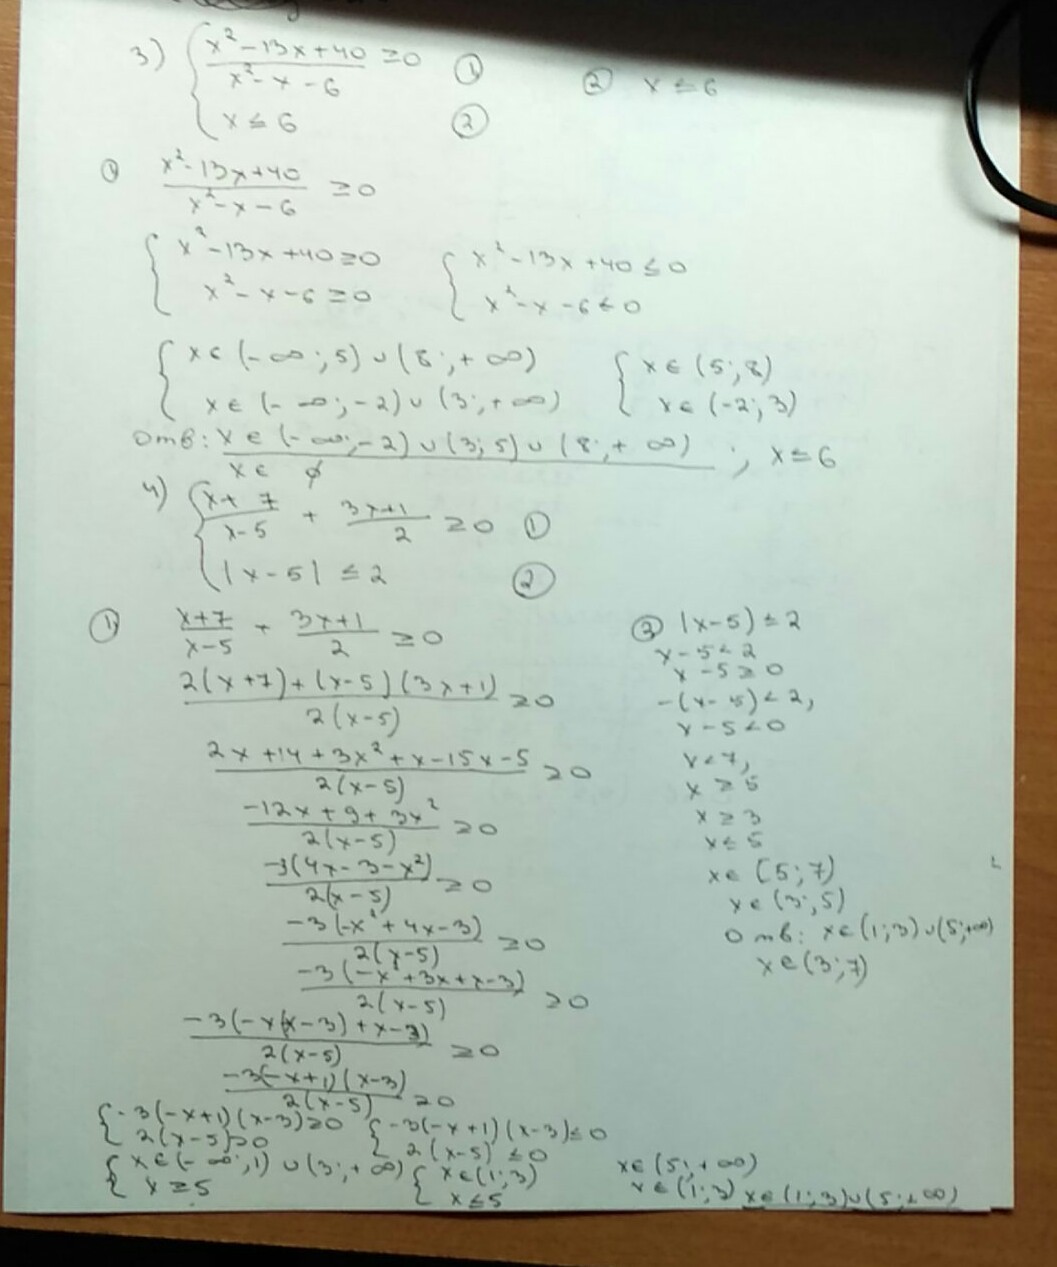 3) { (x² - 13x + 40)/(x² - x - 6) ≥ 0 ①
x ≤ 6 ②
② x ≤ 6
① (x² - 13x + 40)/(x² - x - 6) ≥ 0
{ x² - 13x + 40 ≥ 0 { x² - 13x + 40 ≤ 0
x² - x - 6 ≥ 0 x² - x - 6 ≤ 0
{ x ∈ (-∞; 5) ∪ (8; +∞) { x ∈ (5; 8)
x ∈ (-∞; -2) ∪ (3; +∞) x ∈ (-2; 3)
Отв: x ∈ (-∞; -2) ∪ (3; 5) ∪ (8; +∞) ; x ≤ 6
x ∈ ∅
4) { (x + 7)/(x - 5) + (3x + 1)/2 ≥ 0 ①
|x - 5| ≤ 2 ②
① (x + 7)/(x - 5) + (3x + 1)/2 ≥ 0
(2(x + 7) + (x - 5)(3x + 1))/(2(x - 5)) ≥ 0
(2x + 14 + 3x² + x - 15x - 5)/(2(x - 5)) ≥ 0
(-12x + 9 + 3x²)/(2(x - 5)) ≥ 0
(-3(4x - 3 - x²))/(2(x - 5)) ≥ 0
(-3(-x² + 4x - 3))/(2(x - 5)) ≥ 0
(-3(-x² + 3x + x - 3))/(2(x - 5)) ≥ 0
(-3(-x(x - 3) + x - 3))/(2(x - 5)) ≥ 0
(-3(-x + 1)(x - 3))/(2(x - 5)) ≥ 0
{ -3(-x + 1)(x - 3) ≥ 0 { -3(-x + 1)(x - 3) ≤ 0
2(x - 5) ≥ 0 2(x - 5) ≤ 0
{ x ∈ (-∞; 1) ∪ (3; +∞) { x ∈ (1; 3)
x ≥ 5 x ≤ 5
x ∈ (5; +∞)
x ∈ (1; 3) x ∈ (1; 3) ∪ (5; +∞)
② |x - 5| ≤ 2
x - 5 < 2
x - 5 ≥ 0
-(x - 5) < 2,
x - 5 < 0
x < 7,
x ≥ 5
x ≥ 3
x < 5
x ∈ [5; 7)
x ∈ (3; 5)
Отв: x ∈ (1; 3) ∪ (5; +∞)
x ∈ (3; 7)